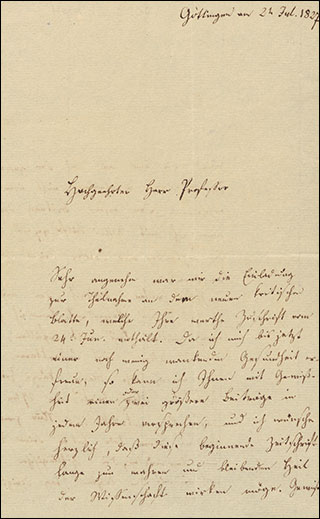 Göttingen den 2t Jul. 1827
Hochgeehrter Herr Professor
Sehr angenehm war mir die Einladung
zur Theilnahme an dem neuen kritischen
Blatte, welche Ihre werthe Zuschrift vom
24t Jun. enthält. Da ich mich bis jetzt
einer noch wenig wankenden Gesundheit er-
freue, so kann ich Ihnen mit Gewiß-
heit einen oder zwei größere Beiträge in
jedem Jahre versprechen, und ich wünsche
herzlich, daß diese beginnende Zeitschrift
lange zum wahren und bleibenden Heil
der Wissenschaft wirken möge. Gewiß